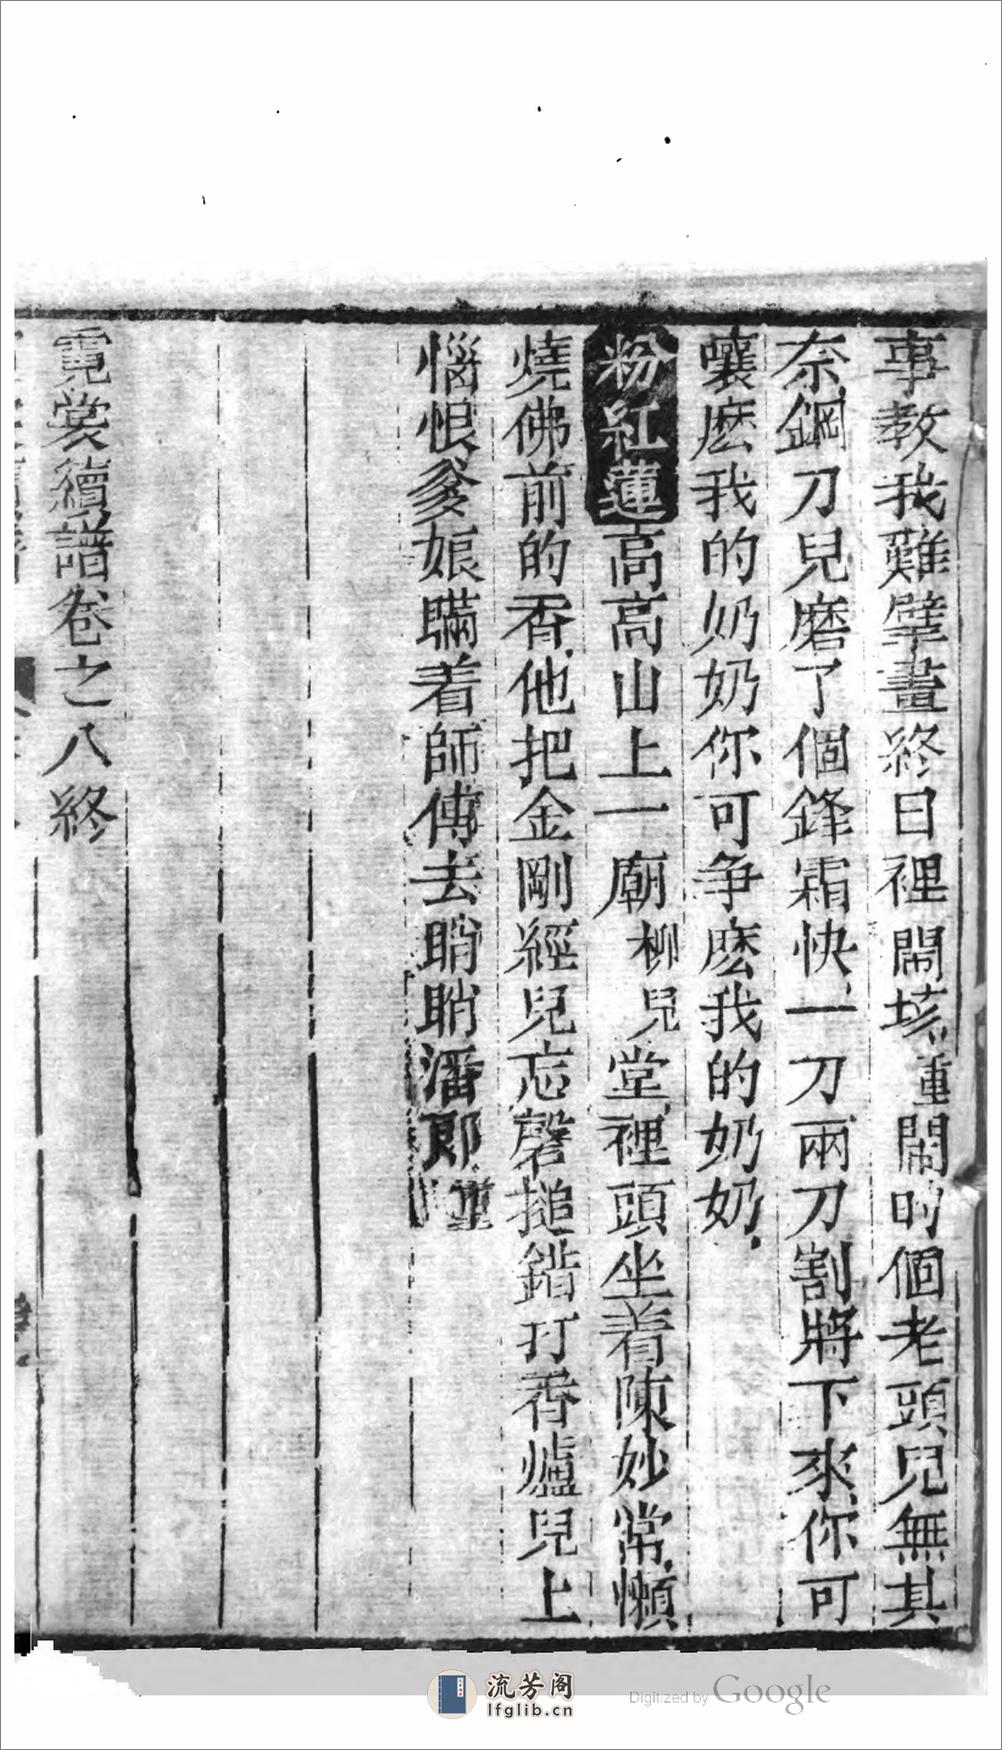 事教我難擘畫終日裡鬧垓垓重鬧的個老頭兒無其
奈鋼刀兒磨了個鋒霜快一刀兩刀割將下來你可
嚷麽我的奶奶你可争麽我的奶奶
粉紅蓮高高山上一廟柳兒堂裡頭坐着陳妙常懶
燒佛前的香他把金剛經兒忘磬搥錯打香爐兒上
惱恨爹娘瞞着師傅去睄睄潘郎重
霓裳續譜卷之八終
流芳阁
lfglib.cn
Digitized by Google